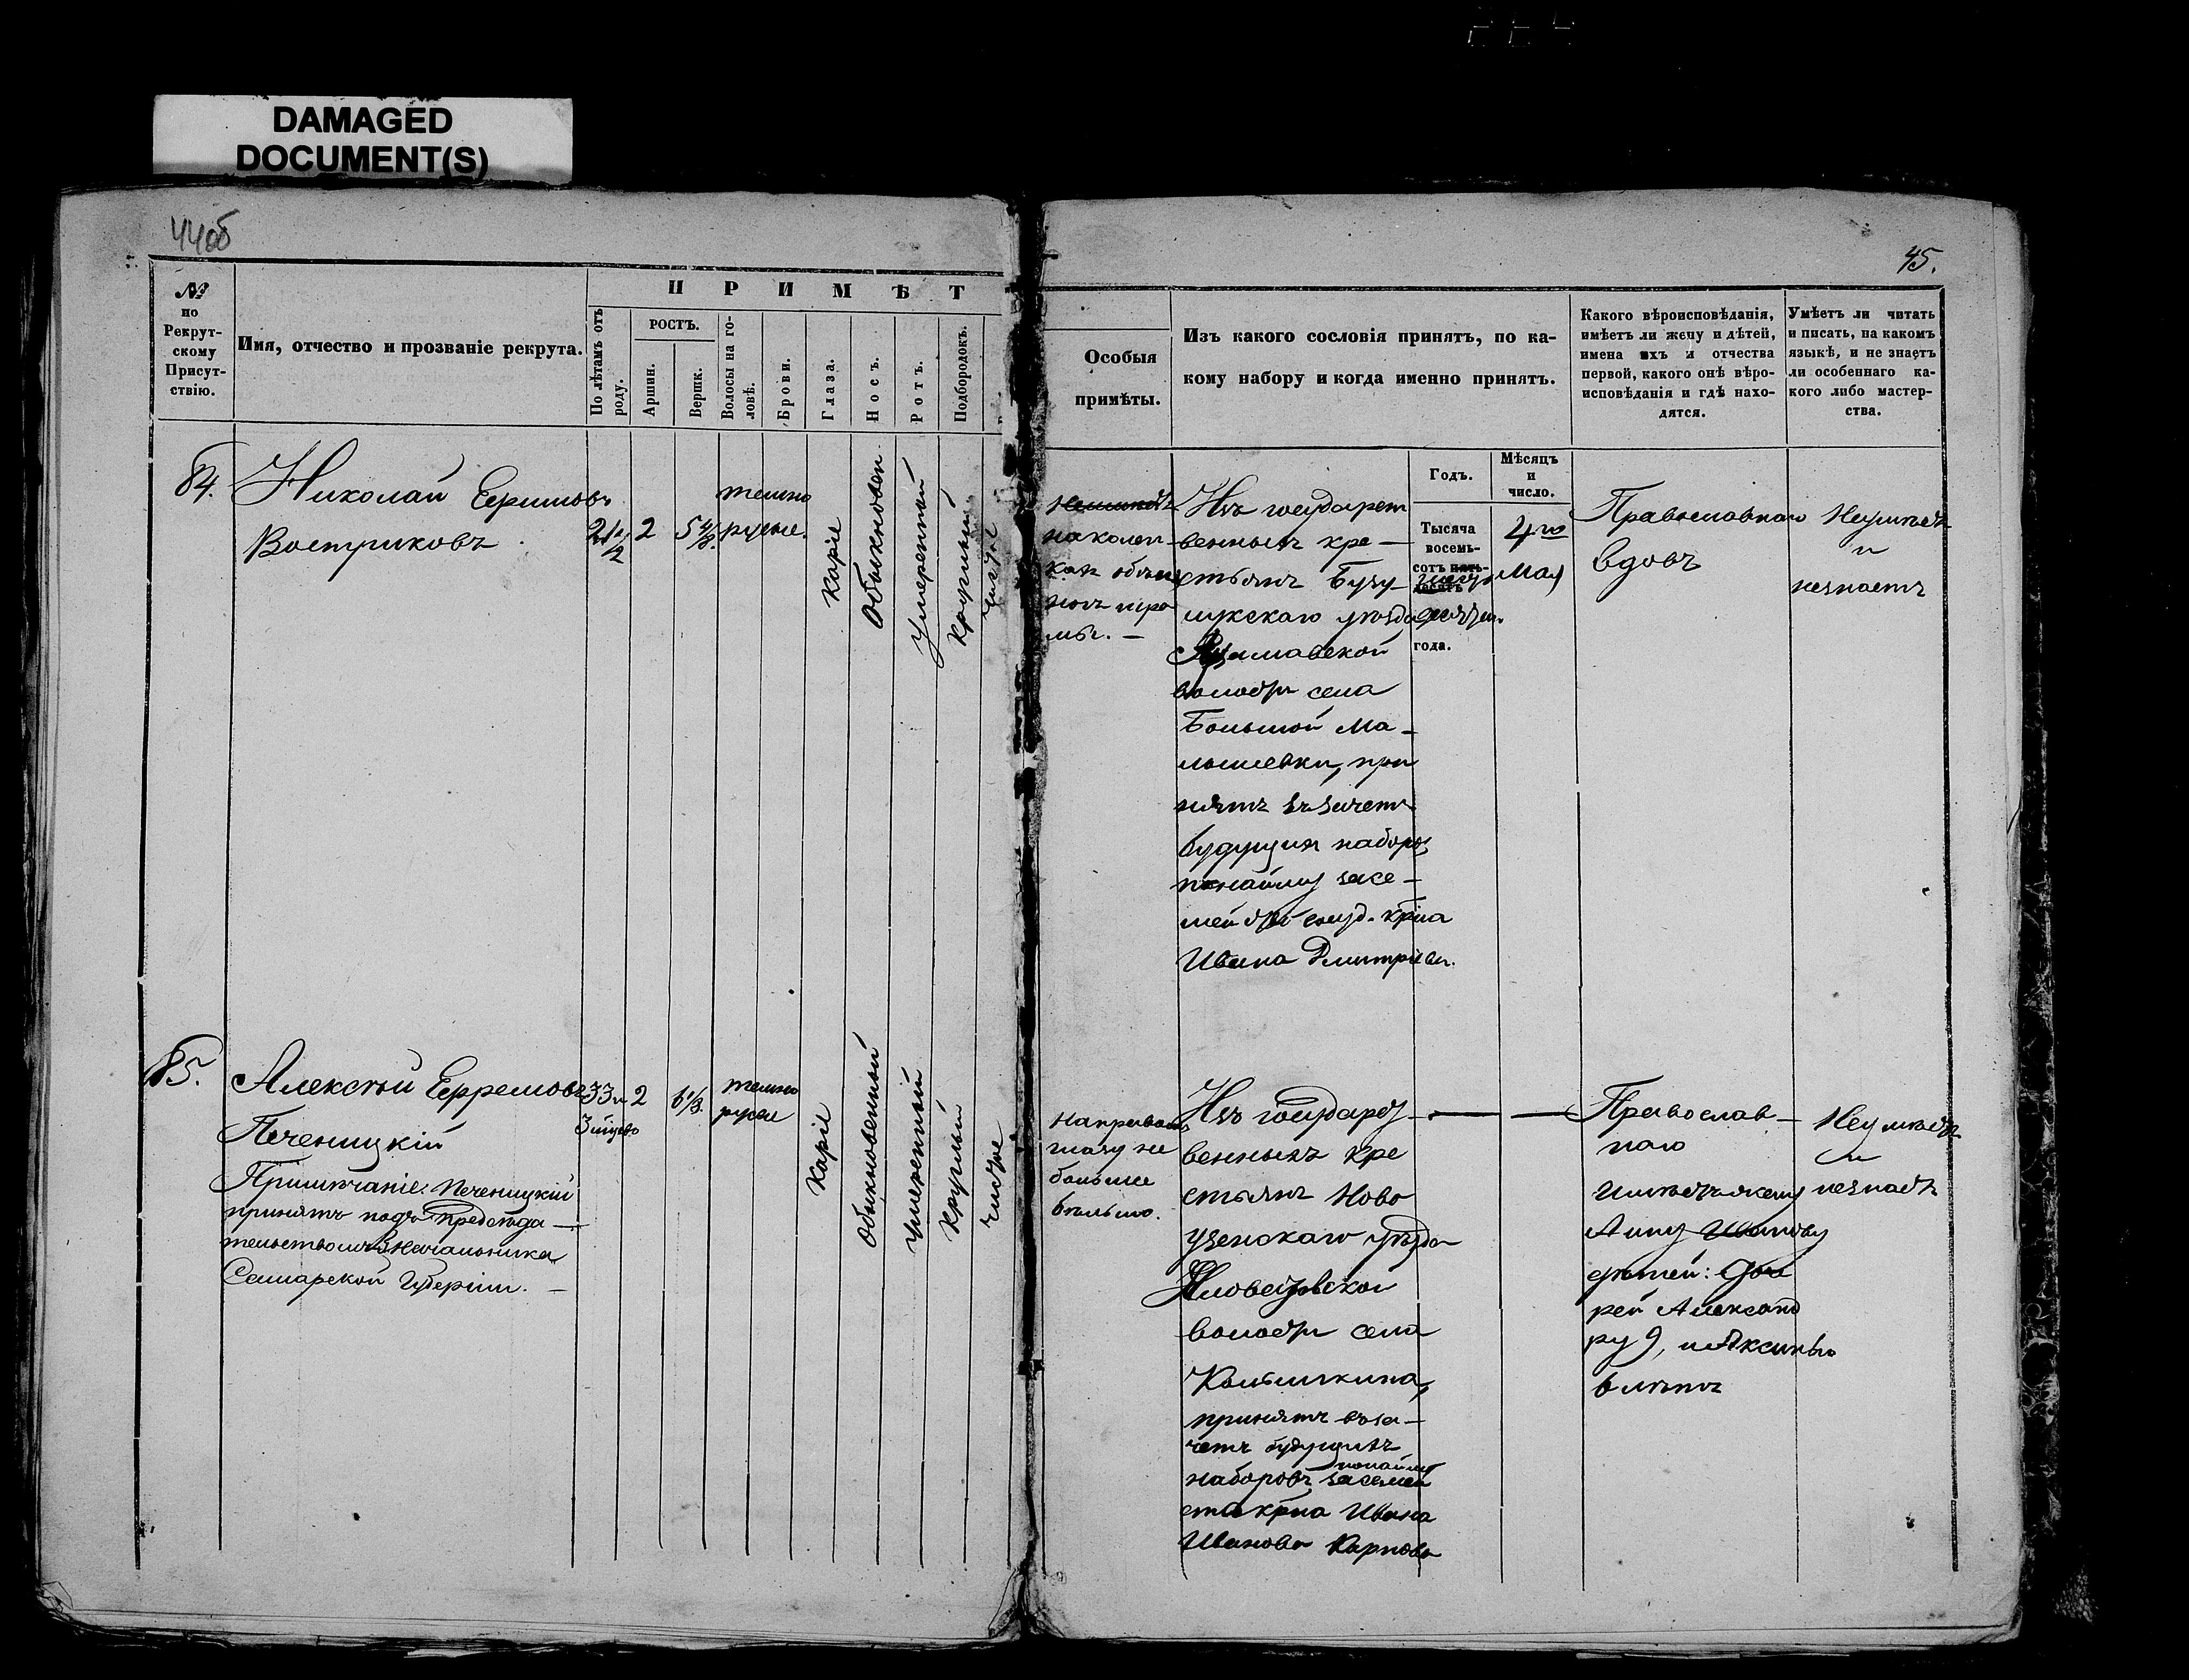 DAMAGED
DOCUMENT(S)
44об
45.
№
по
Рекрут-
скому
Присут-
ствію.
Имя, отчество и прозваніе рекрута.
ПРИМѢТ
По лѣтамъ отъ
роду.
РОСТЪ.
Аршин.
Вершк.
Волосы на го-
ловѣ.
Брови.
Глаза.
Носъ.
Ротъ.
Подбородокъ.
Особыя
примѣты.
Изъ какого сословія принятъ, по ка-
кому набору и когда именно принятъ.
Годъ.
Мѣсяцъ
и
число.
Какого вѣроисповѣданія,
имѣетъ ли жену и дѣтей,
имена ихъ и отчества
первой, какого онѣ вѣро-
исповѣданія и гдѣ нахо-
дятся.
Умѣетъ ли читать
и писать, на какомъ
языкѣ, и не знаетъ
ли особеннаго ка-
кого либо мастер-
ства.
84.
Николай Ефимовъ
Востриковъ
21 1/2
2
5 4/8.
темно
русые.
Каріе
Обыкновен.
Умеренный
Круглый
чистое
на колен-
кахъ
Изъ государст
венныхъ кре-
стьянъ Бузу-
лукскаго уѣзда
волости села
Большой Ма-
лышевки, при
нятъ въ зачетъ
будущихъ наборо
по найму за се-
мейство госуд. кр-на
Ивана Дмитріева.
Тысяча
восемь-
сотъ пять-
десятъ
года.
4го
Мая
Православнаго
вдовъ
Неумѣетъ
и
незнаетъ
85.
Алексѣй Ефремовъ
Печеницкій
Примѣчаніе: Печеницкій
принятъ подъ предсѣда-
тельствомъ Г. Начальника
Самарской Губерніи.-
33 и
2
6 1/8.
темно
русые
Каріе
Обыкновенный
Умеренный
Круглый
чистое
На правомъ
глазу не
большое
бѣльмо.
Изъ государст
венныхъ кре
стьянъ Ново
узенскаго уѣзда
волости села
принятъ въ за-
четъ будущихъ
наборовъ по найму
за семей
ство кр-на Ивана
Иванова Карпова
Православ-
наго
имѣетъ жену
Анну Иванову
дѣтей: Доче
рей Александ
ру 9, и Аксинью
6 лѣтъ
Неумѣетъ
и
незнаетъ